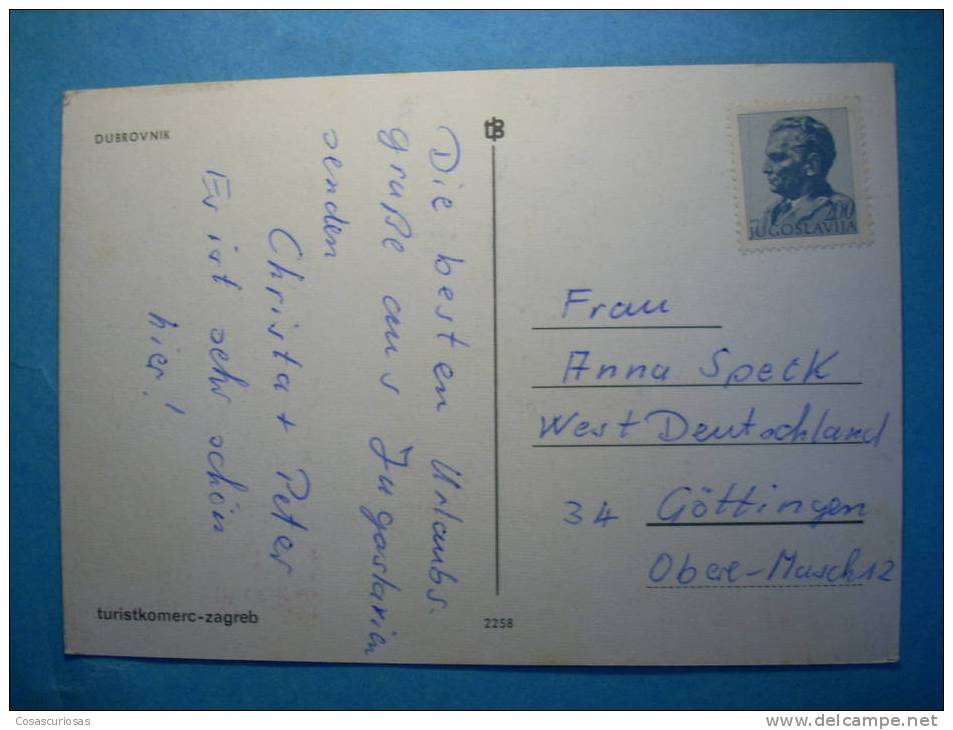 DUBROVNIK
Die besten Urlaubs-
grüße aus Jugoslavien
senden
Christa + Peter
Es ist sehr schön
hier!
turistkomerc-zagreb
2258
200
JUGOSLAVIJA
Frau
Anna Speck
West Deutschland
34 Göttingen
Obere-Masch 12
Cosascuriosas
www.delcampe.net